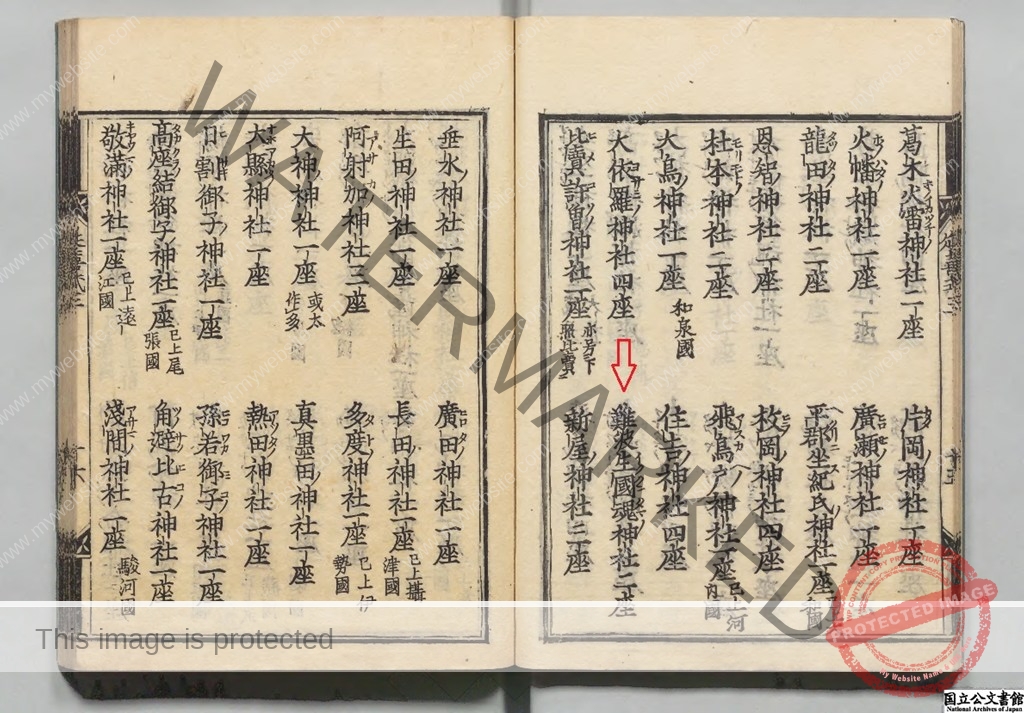 葛木火雷神社二座
片岡神社一座
火幡神社一座
廣瀬神社一座
龍田神社二座
平群坐紀氏神社一座
恩智神社二座
枚岡神社四座
杜本神社二座
飛鳥戸神社一座 已上河内國
大鳥神社一座 和泉國
住吉神社四座
大依羅神社四座
難波生國魂神社二座
比賣許曽神社一座 亦号下照比賣
新屋神社三座
垂水神社一座
廣田神社一座
生田神社一座
長田神社一座 已上攝津國
阿射加神社三座
多度神社一座 已上伊勢國
大神神社一座 或太作多
真墨田神社一座
大縣神社一座
熱田神社一座
日割御子神社一座
孫若御子神社一座
高座結御子神社一座 已上尾張國
角避比古神社一座
敬滿神社一座 已上遠江國
淺間神社一座 駿河國
WATERMARKED
This image is protected
PROTECTED IMAGE
My Website Name
www.mywebsite.com
国立公文書館
National Archives of Japan